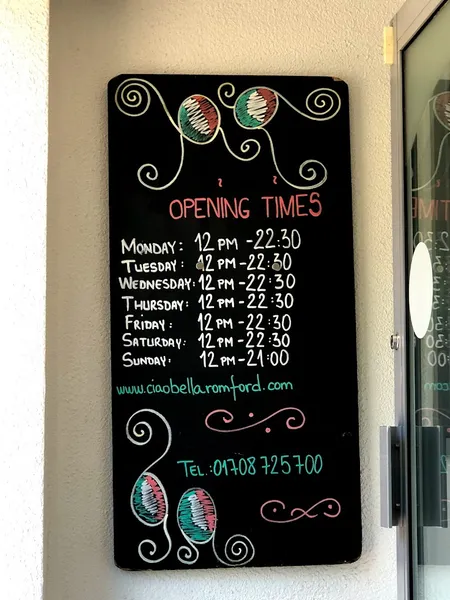 OPENING TIMES
MONDAY: 12 PM - 22:30
TUESDAY: 12 PM - 22:30
WEDNESDAY: 12 PM - 22:30
THURSDAY: 12 PM - 22:30
FRIDAY: 12 PM - 22:30
SATURDAY: 12 PM - 22:30
SUNDAY: 12 PM - 21:00
www.ciaobellaromford.com
TEL.: 01708 725700